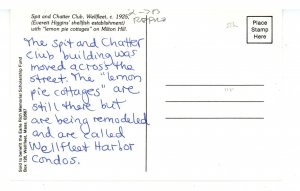 Spit and Chatter Club, Wellfleet, c. 1925.
(Everett Higgins' shellfish establishment)
with "lemon pie cottages" on Milton Hill.
The Spit and Chatter
Club building was
moved across the
street. The "lemon
pie cottages" are
still there but
are being remodeled
and are called
Wellfleet Harbor
Condos.
Place
Stamp
Here
Sold to benefit the Elaine Rich Memorial Scholarship Fund
Box 128, Wellfleet, Mass. 02667